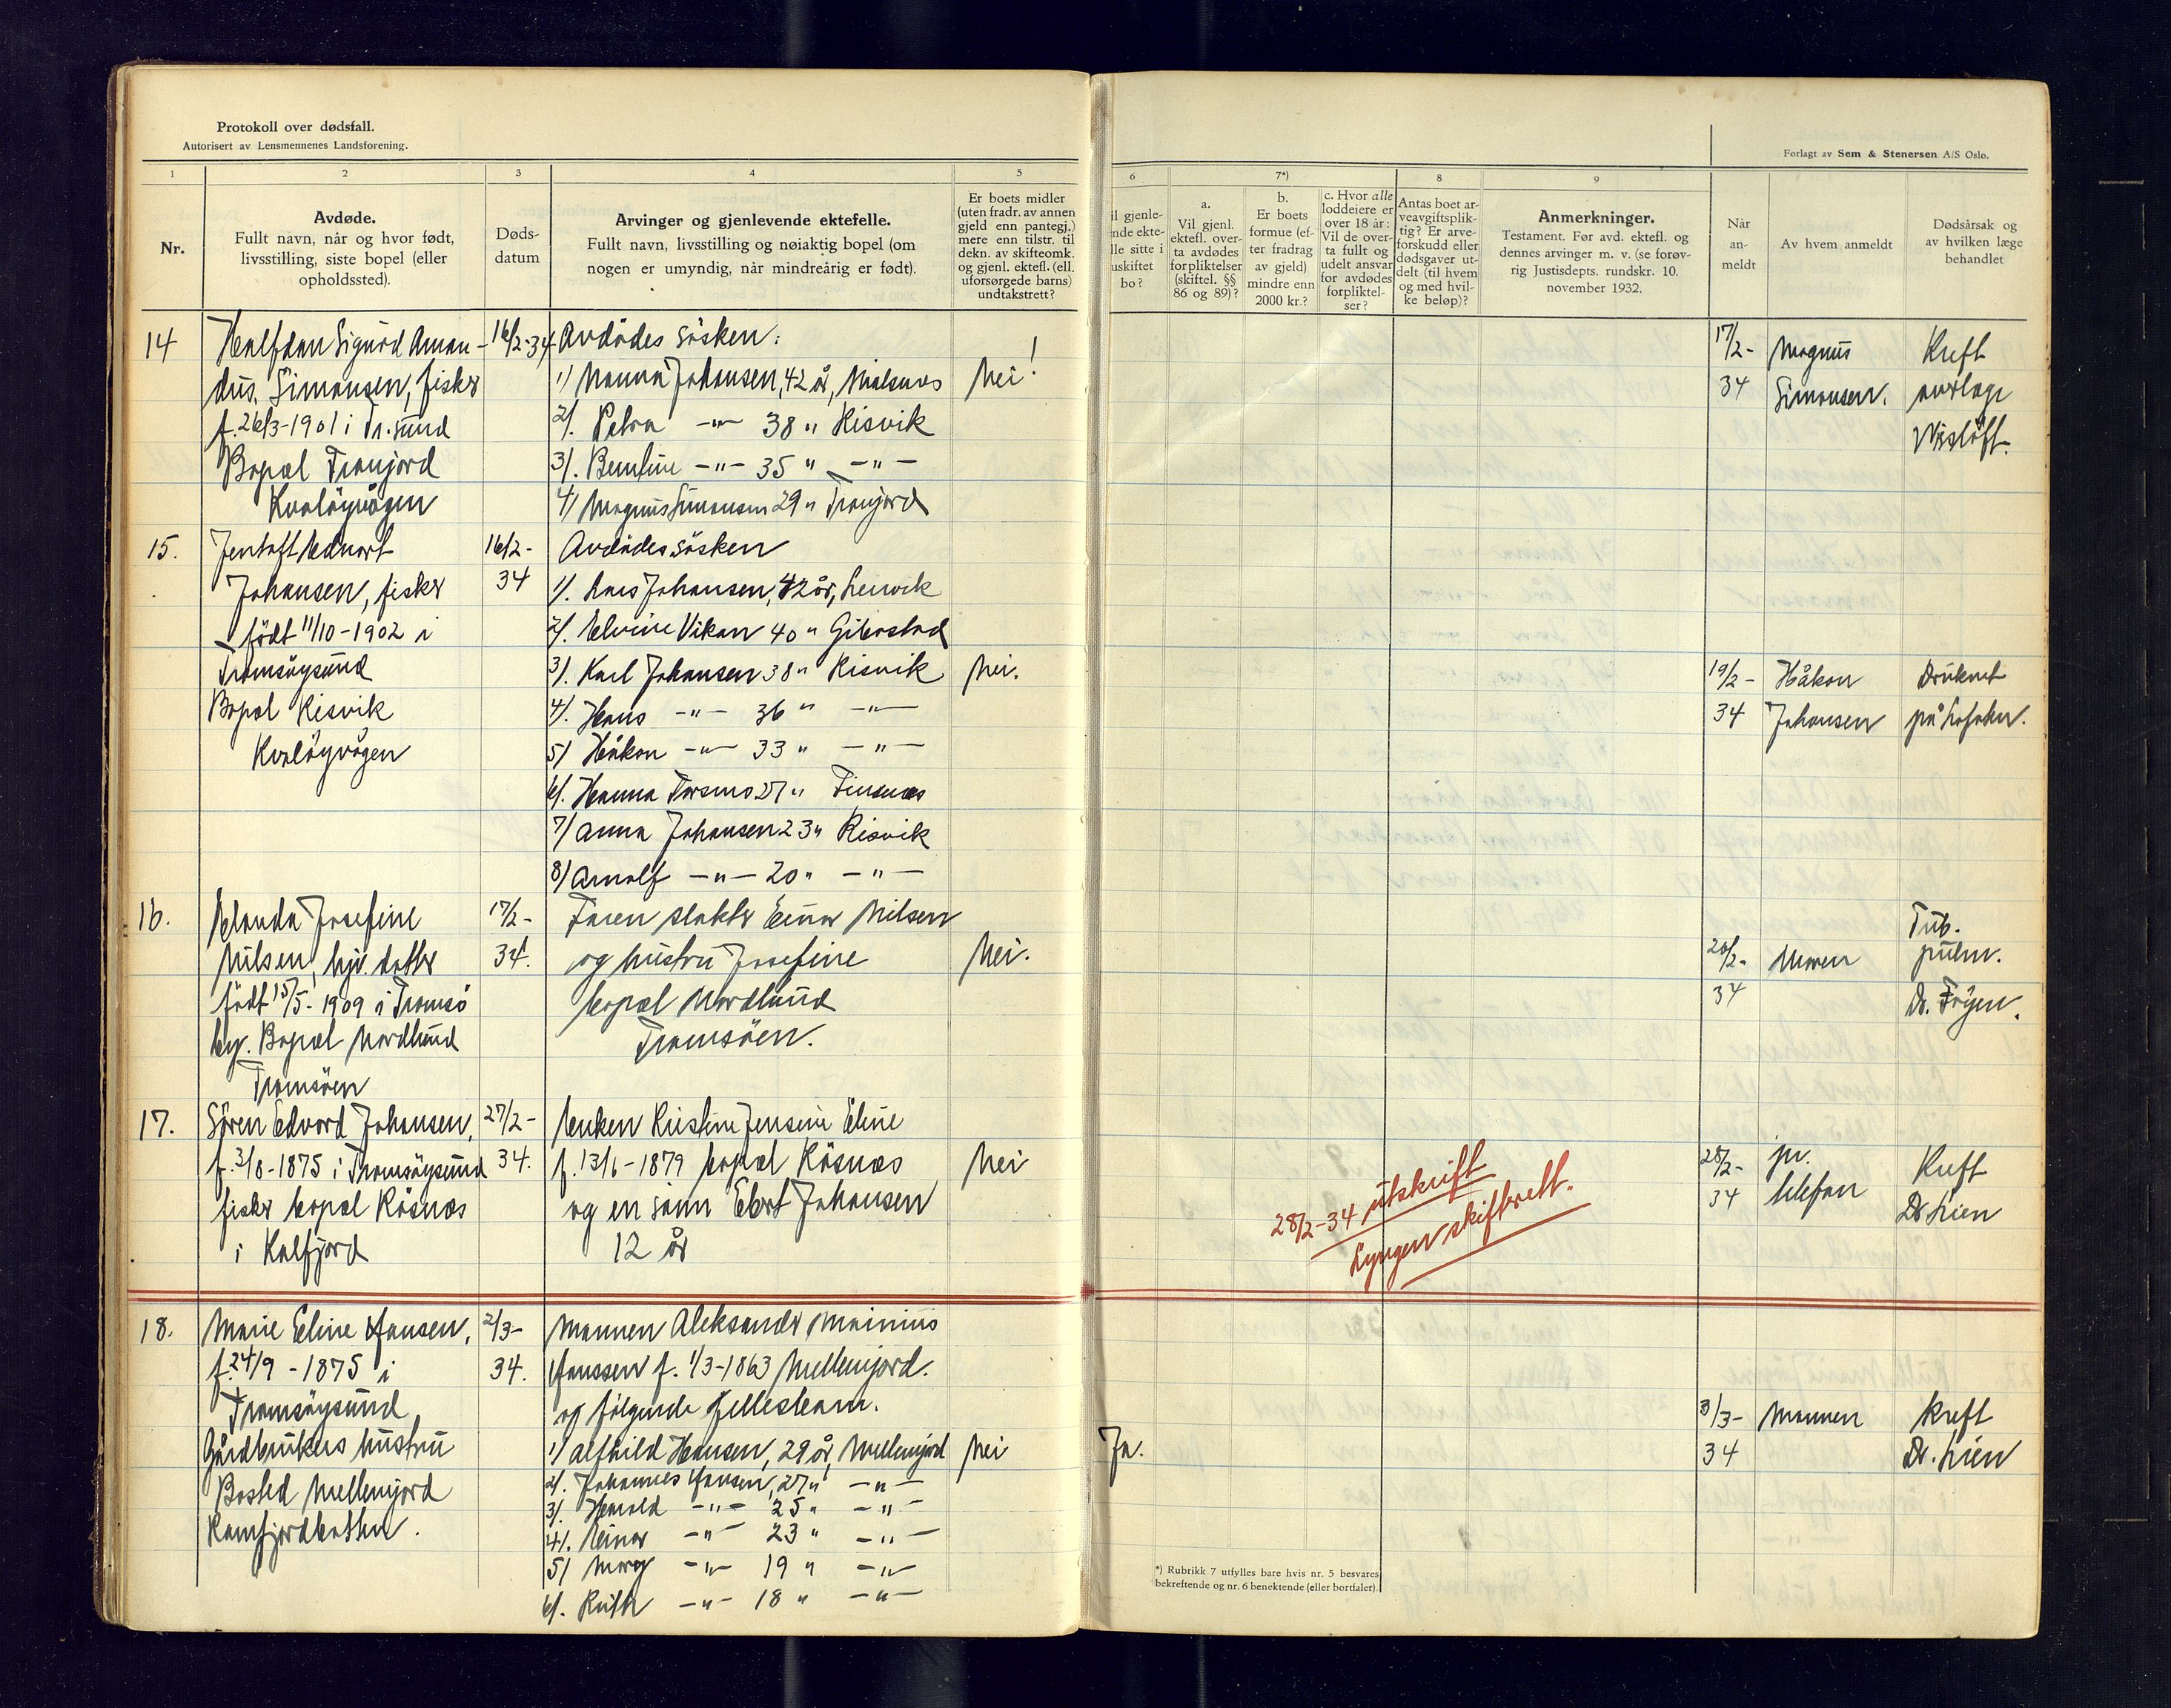 Protokoll over dødsfall.
Autorisert av Lensmennenes Landsforening.
Forlagt av Sem & Stenersen A/S Oslo.
1 2 3 4 5 6 7*) 8 9
Nr.
Avdøde.
Fullt navn, når og hvor født,
livsstilling, siste bopel (eller
opholdssted).
Døds-
datum
Arvinger og gjenlevende ektefelle.
Fullt navn, livsstilling og nøiaktig bopel (om
nogen er umyndig, når mindreårig er født).
Er boets midler
(uten fradr. av annen
gjeld enn pantegj.)
mere enn tilstr. til
dekn. av skifteomk.
og gjenl. ektefl. (ell.
uforsørgede barns)
undtakstrett?
il gjenle-
nde ekte-
lle sitte i
uskiftet
bo?
a.
Vil gjenl.
ektefl. over-
ta avdødes
forpliktelser
(skiftel. §§
86 og 89)?
b.
Er boets
formue (ef-
ter fradrag
av gjeld)
mindre enn
2000 kr.?
c. Hvor alle
loddeiere er
over 18 år:
Vil de over-
ta fullt og
udelt ansvar
for avdødes
forpliktel-
ser?
Antas boet ar-
veavgiftsplik-
tig? Er arve-
forskudd eller
dødsgaver ut-
delt (til hvem
og med hvil-
ke beløp)?
Anmerkninger.
Testament. Før avd. ektefl. og
dennes arvinger m. v. (se forøv-
rig Justisdepts. rundskr. 10.
november 1932.
Når
an-
meldt
Av hvem anmeldt
Dødsårsak og
av hvilken læge
behandlet
14
Halfdan Sigurd Aman-
dus. Simonsen, fisker
f. 26/3-1901 i Tr.sund
Bopæl Tronjord
Kvaløyvågen
16/2-34
Avdødes søsken:
1) Nanna Johansen, 42 år,
2/. Petra -"- 38 " Risvik
3/. Bentine -"- 35 " -"-
4/ Magnus Simonsen 29 " Tronjord
Nei!
17/2-
34
Magnus
Simonsen.
Kreft
15.
Jentoft Edvart
Johansen, fisker
født 11/10-1902 i
Tromsøysund
Bopæl Risvik
Kvaløyvågen
16/2-
34
Avdødes søsken
1/. Lars Johansen, 42 år, Lenvik
2/. Elvine Vikan 40 " Gibostad
3/. Karl Johansen 38 " Risvik
4/. Hans -"- 36 " -"-
5/ Håkon -"- 33 " -"-
6/. Hanna Torsmo 27 " Finsnes
7/ Anna Johansen 23 " Risvik
8/ Arnolf -"- 20 " -"-
Nei.
19/2-
34
Håkon
Johansen
Druknet
på Lofoten.
16.
Wanda Josefine
Nilsen, hjv. datter
født 15/5-1909 i Tromsø
by. Bopæl Nordlund
Tromsøen
17/2-
34.
Faren slakter Einar Nilsen
og hustru Josefine
bopæl Nordlund
Tromsøen.
Nei.
20/2-
34
Moren
Tub.
pulm.
Dr. Frøyen.
17.
Søren Edvard Johansen,
f. 3/8-1875 i Tromsøysund
fisker bopæl Røsnæs
i Kalfjord
27/2-
34.
Enken Kristine Jensine Eline
f. 13/6-1879 bopæl Røsnæs
og en sønn Ebert Johansen
12 år
Nei
28/2-34 utskrift
Lyngen skifterett.
28/2-
34
pr.
telefon
Kreft
Dr Lien
18.
Marie Eline Hansen,
f. 24/9-1875 i
Tromsøysund
Gårdbrukers hustru
Bosted Mellemjord
Ramfjordbotten.
2/3-
34.
Mannen Aleksander Mainius
Hanssen f. 1/3-1863 Mellemjord.
og følgende fellesbarn.
1/ Alfhild Hansen, 29 år, Mellemjord
2/. Johannes Hansen, 27 " -"-
3/. Harald -"- 25 " -"-
4/. Einar -"- 23 " -"-
5/ Mary -"- 19 " -"-
6/. Ruth -"- 18 " -"-
Nei
Ja.
3/3-
34
Mannen
Kreft
Dr. Lien
*) Rubrikk 7 utfylles bare hvis nr. 5 besvares
bekreftende og nr. 6 benektende (eller bortfaler).